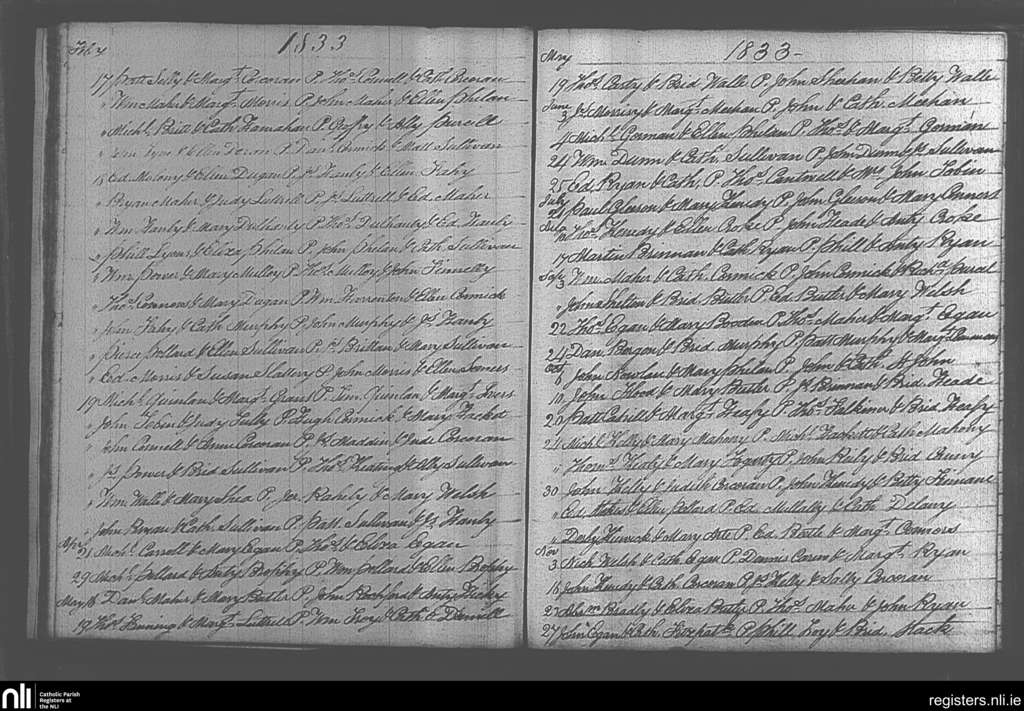 1833
Feby
17 Patt Jelly & Margt Corcoran P. Thos Connell & Cath Corcoran
" Wm Maher & Margt Morris P. John Maher & Ellen Phelan
" Michl Britt & Cath Hanrahan P. & Ally Purcell
" Wm Lyon & Ellen P. Danl Cormick & Matt Sullivan
18 Ed Melony & Ellen Dugan P. Js Hanly & Ellen Fahy
" Ryan Maher & Judy Luttrell P. Ps Luttrell & Ed Maher
" Wm Hanly & Mary Dulhanty P. Thos Dulhanty & Ed Hanly
" Phill Lyons & Eliza Phelan P. John Phelan & Cath Sullivan
" Wm Power & Mary Mulloy P. Thos Mulloy & John Finnelly
" Thos Connors & Mary Dugan P. Wm Thorenton & Ellen Cormick
" John Fahy & Cath Murphy P. John Murphy & Js Hanly
" Pierce Pollard & Ellen Sullivan P. Ps Brittan & Mary Sullivan
" Ed Morris & Susan Slattery P. John Morris & Ellen Somers
19 Michl Quinlan & Margt Grant P. Tim Quinlan & Margt Ivers
" John Tobin & Judy Tully P. Hugh Cormick & Mary Hacket
" Wm Connell & Anne Corcoran P. Ps Madden & Jude Corcoran
" Ps Power & Brid Sullivan P. Thos Keating & Ally Sullivan
" Wm Wall & Mary Shea P. Jos Rahely & Mary Welsh
" John Ryan & Cath Sullivan P. Patt Sullivan & Js Hanly
Apr 21 Michl Carroll & Mary Egan P. Thos & Eliza Egan
29 Michl Pollard & Anty Brophy P. Wm Pollard & Ellen Brophy
May 16 Danl Maher & Mary Butler P. John Rochford & Anty Hicky
19 Thos Fanning & Margt Luttrel P. Wm Troy & Cath O Donnell
1833
May
19 Thos Casty & Brid Walle P. John Sheahan & Betty Walle
June 3 Js Morrissy & Margt Meehan P. John & Cath Meehan
4 Michl Gorman & Ellen Phelan P. Thos & Margt Gorman
24 Wm Dunn & Cath Sullivan P. John Dunn & Js Sullivan
25 Ed Ryan & Cath P. Thos Cantwell & Mrs John Tobin
July 21 Paul Gleeson & Mary Kenedy P. John Gleeson & Mary Connors
Aug 12 Thos & Ellen Croke P. John Meade & Anty Croke
17 Martin Brennan & Cath Ryan P. Phill & Anty Ryan
Sepr 3 Wm Maher & Cath Cormick P. John Cormick & Richd Pursel
" John Shelton & Brid Butler P. Ed Butler & Mary Welsh
22 Thos Egan & Mary Bowden P. Thos Maher & Margt Egan
24 Danl Bergen & Brid Murphy P. Patt Murphy & Margt Brennan
Oct 6 John Nowlan & Mary Phelan P. John & Cath St John
10 John Flood & Mary Butler P. Js Brennan & Brid Meade
20 Patt Cahill & Margt Heafy P. Thos Falkiner & Brid Heafy
21 Michl Kelly & Mary Mahony P. Michl Hackett & Cath Mahony
" Thoms Healy & Mary Fogerty P. John Ruly & Brid Curry
30 John Kelly & Judith Corcoran P. John Kenedy & Betty Kinnane
" Ed Stokes & Ellen Pollard P. Ed Mullally & Cath Delany
" Derby & Mary P. Ed Bottle & Margt Connors
Nov 3 Nick Welsh & Cath Egan P. Dennis Carew & Margt Ryan
16 John Kenedy & Cath Corcoran P. Ps Kelly & Sally Corcoran
23 Bradly & Eliza Batty P. Thos Maher & John Ryan
27 John Egan & Cath Fitzpatk P. Phill Loy & Brid Stack
nli
Catholic Parish
Registers at
the NLI
registers.nli.ie